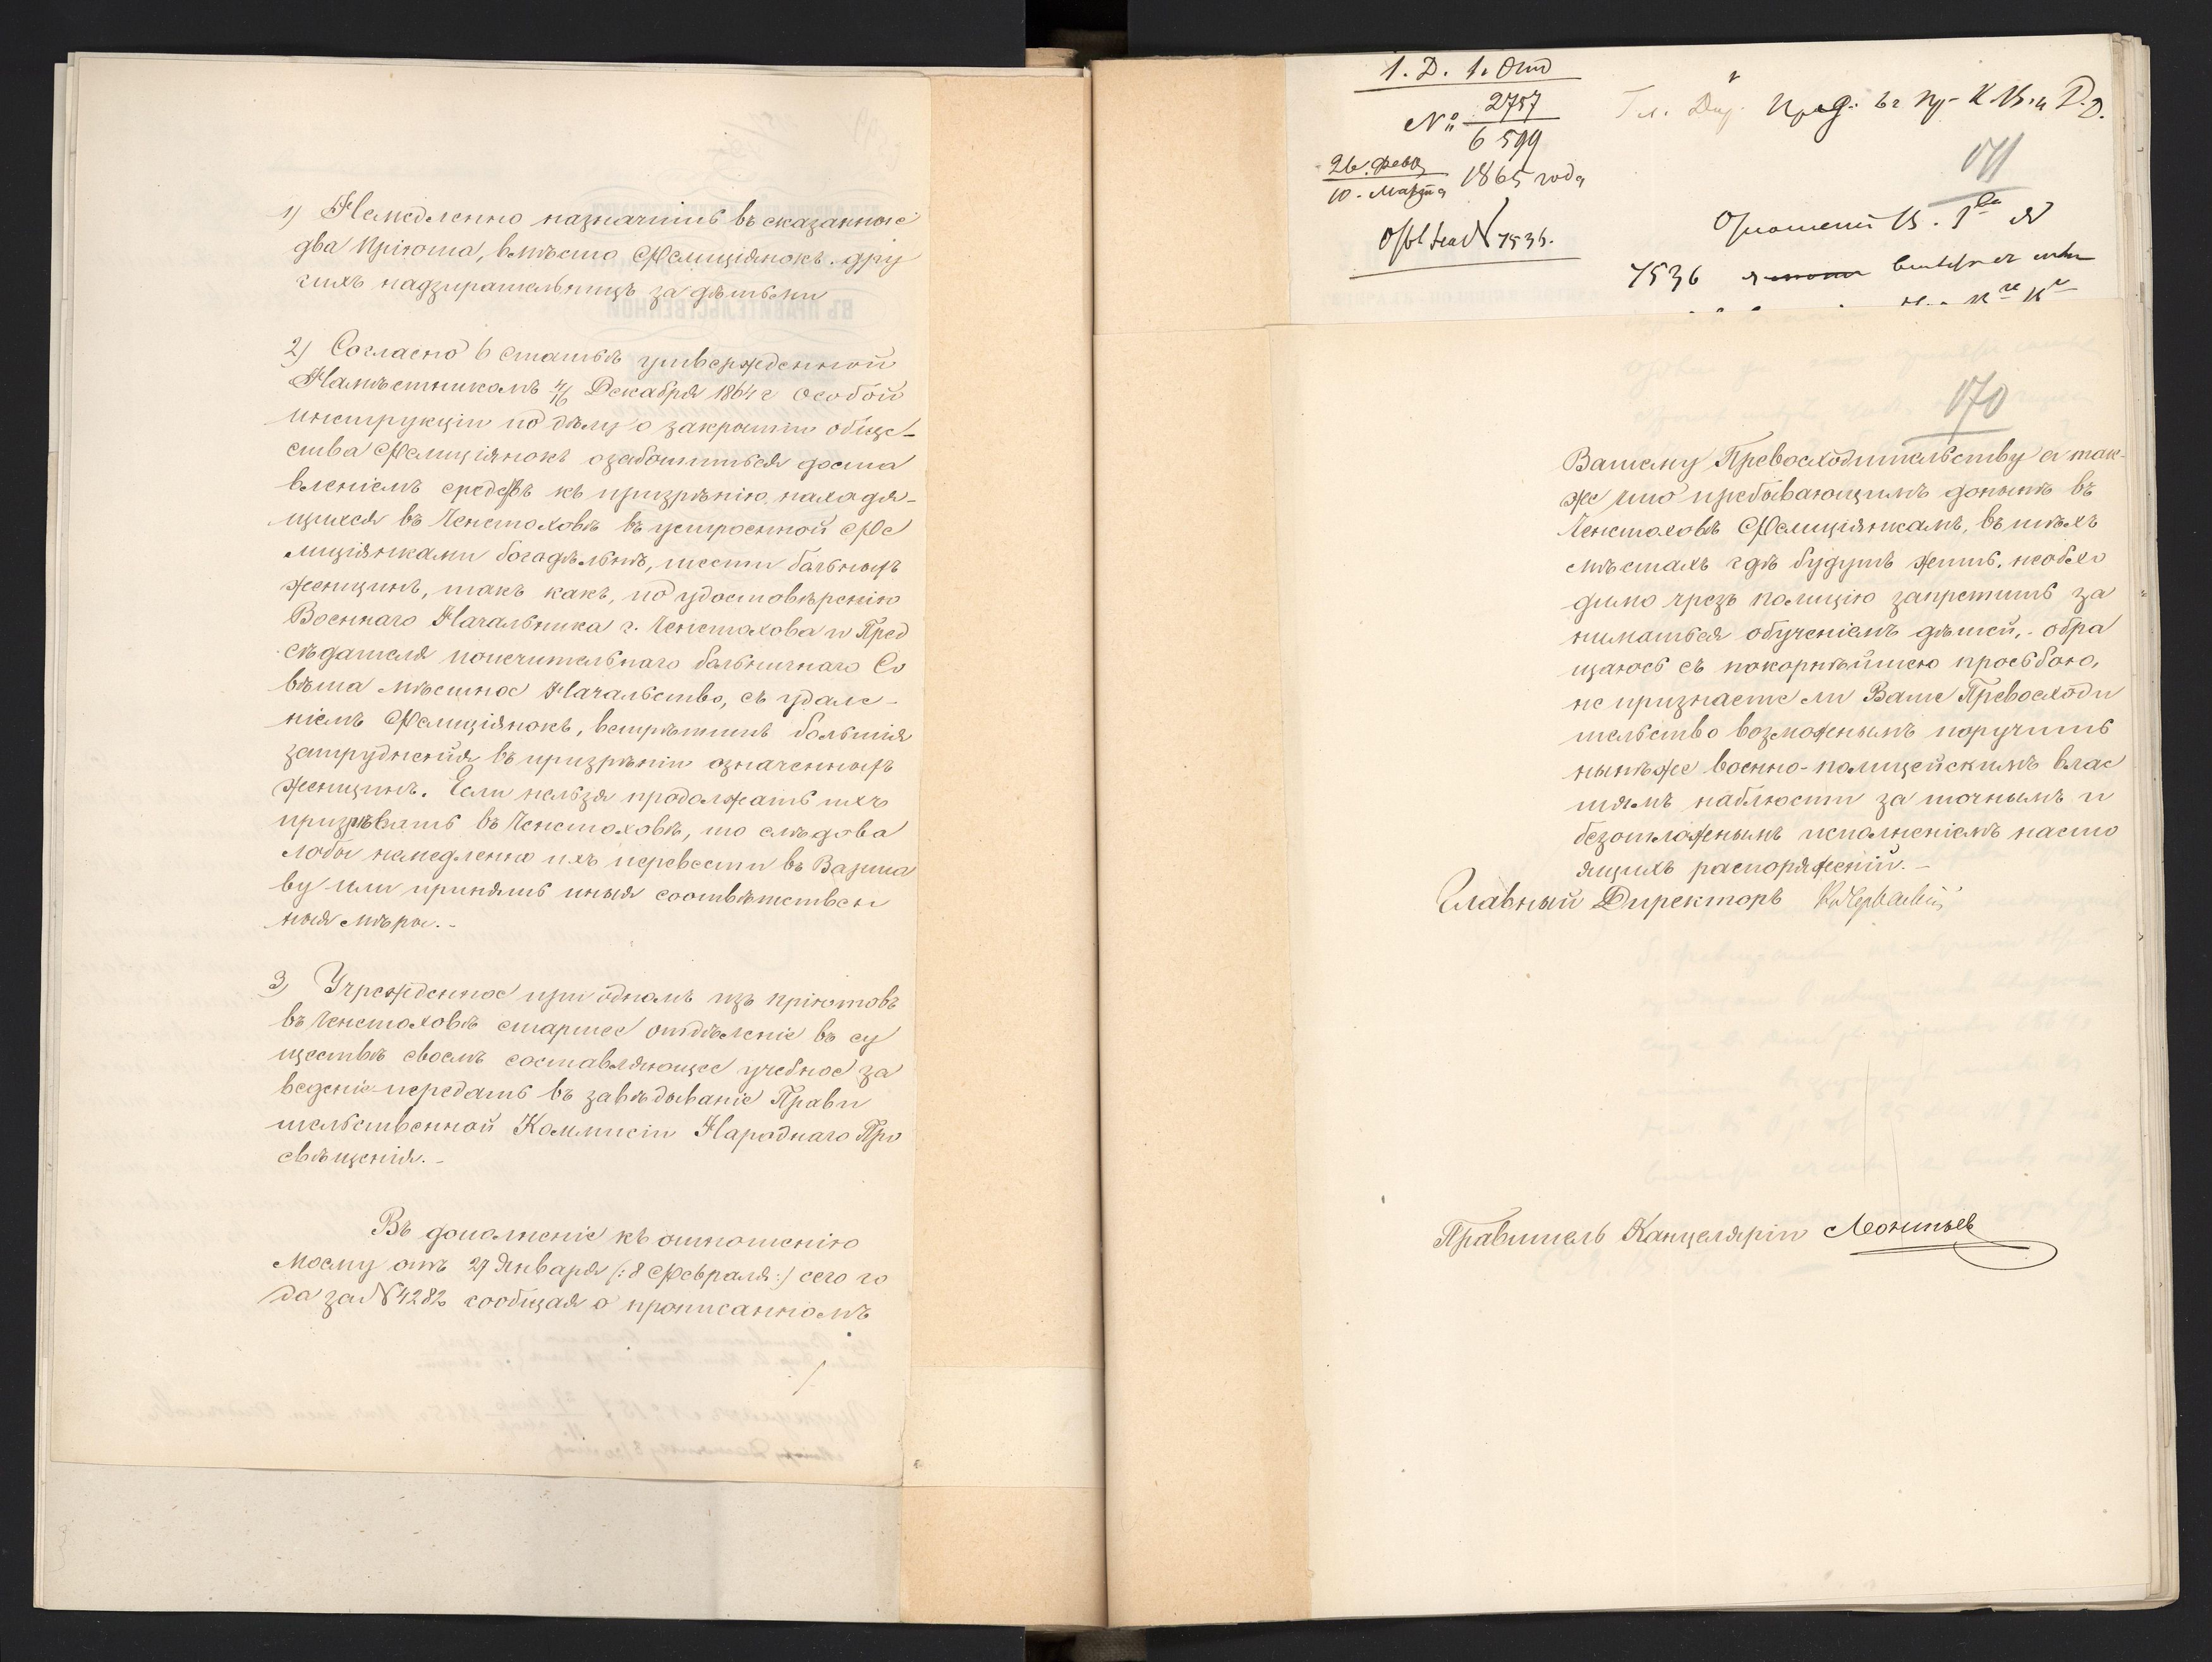 1) Немедленно назначить въ сказанные
два пріюта, вмѣсто Фелиціянокъ дру
гихъ надзирательницъ за дѣтьми
2) Согласно 6 статьѣ утвержденной
Намѣстникомъ 4/16 Декабря 1864 г особой
инструкціи по дѣлу о закрытіи обще-
ства Фелиціянокъ озаботиться доста
вленіемъ средствъ къ призрѣнію находя-
щихся въ Ченстоховѣ въ устроенной Фе
лиціянками богадѣльнѣ, шести больныхъ
женщинъ, такъ какъ, по удостовѣренію
Военнаго Начальника г. Ченстохова и Пред
сѣдателя попечительнаго больничнаго Со
вѣта мѣстное Начальство, съ удале-
ніемъ Фелиціянокъ, встрѣтитъ большія
затрудненія въ призрѣніи означенныхъ
женщинъ. Если нельзя продолжать ихъ
призрѣвать въ Ченстоховѣ, то слѣдова
лобы немедленно ихъ перевести въ Варша
ву или принять иныя соотвѣтствен
ныя мѣры.-
3) Учрежденное при одномъ изъ пріютовъ
въ Ченстоховѣ старшее отдѣленіе въ су
ществѣ своемъ составляющее учебное за
веденіе передать въ завѣдываніе Прави
тельственной Коммисіи Народнаго Про
свѣщенія.-
Въ дополненіе къ отношенію
моему отъ 27 Января (: 8 Февраля :) сего го
да за № 4282 сообщая о прописанномъ
1. Д. 1. Отд
№ 2757
6599
26. Февр
10. Марта 1865 года
№ 7536.
Гл. Дир. Пред. въ Пр. К. В. и Д. Д.
171
7536
170
Вашему Превосходительству а так-
же что пребывающимъ донынѣ въ
Ченстоховѣ Фелиціянкамъ, въ тѣхъ
мѣстахъ гдѣ будутъ жить, необхо
димо чрезъ полицію запретить за
ниматься обученіемъ дѣтей, обра
щаюсь съ покорнѣйшею просьбою,
не признаете ли Ваше Превосходи
тельство возможнымъ поручить
нынѣже военно-полицейскимъ влас
тямъ наблюсти за точнымъ и
безотложнымъ исполненіемъ насто
ящихъ распоряженій.-
Главный Директоръ
Правитель Канцеляріи Леонтьев